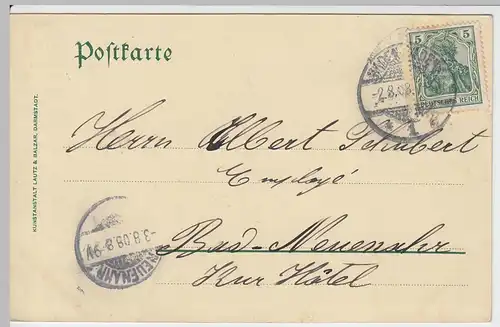 Postkarte
5 5
DEUTSCHES REICH
BADEN BADEN
-2.8.08.
1
KUNSTANSTALT LAUTZ & BALZAR, DARMSTADT.
Herrn Albert Schubert
Employé
Bad-Neuenahr
Kur Hôtel
NEUENAHR
-3.8.08.8-9V.